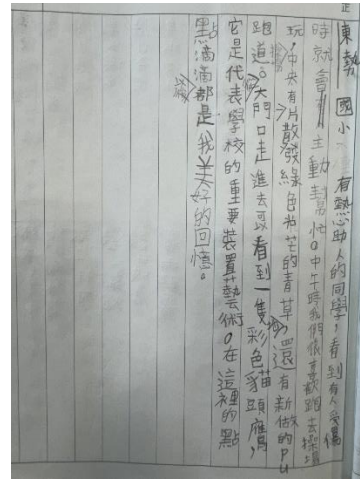 東勢國小有熱心助人的同學，看到有人受傷
時就會主動幫忙。中午時我們很喜歡跑去操場
玩，中央有片散發綠色光芒的青草，還有新做的PU
跑道。大門口走進去或看到一隻彩色貓頭鷹，
它是代表學校的重要裝置藝術。在這裡的點
點滴滴都是我美好的回憶。